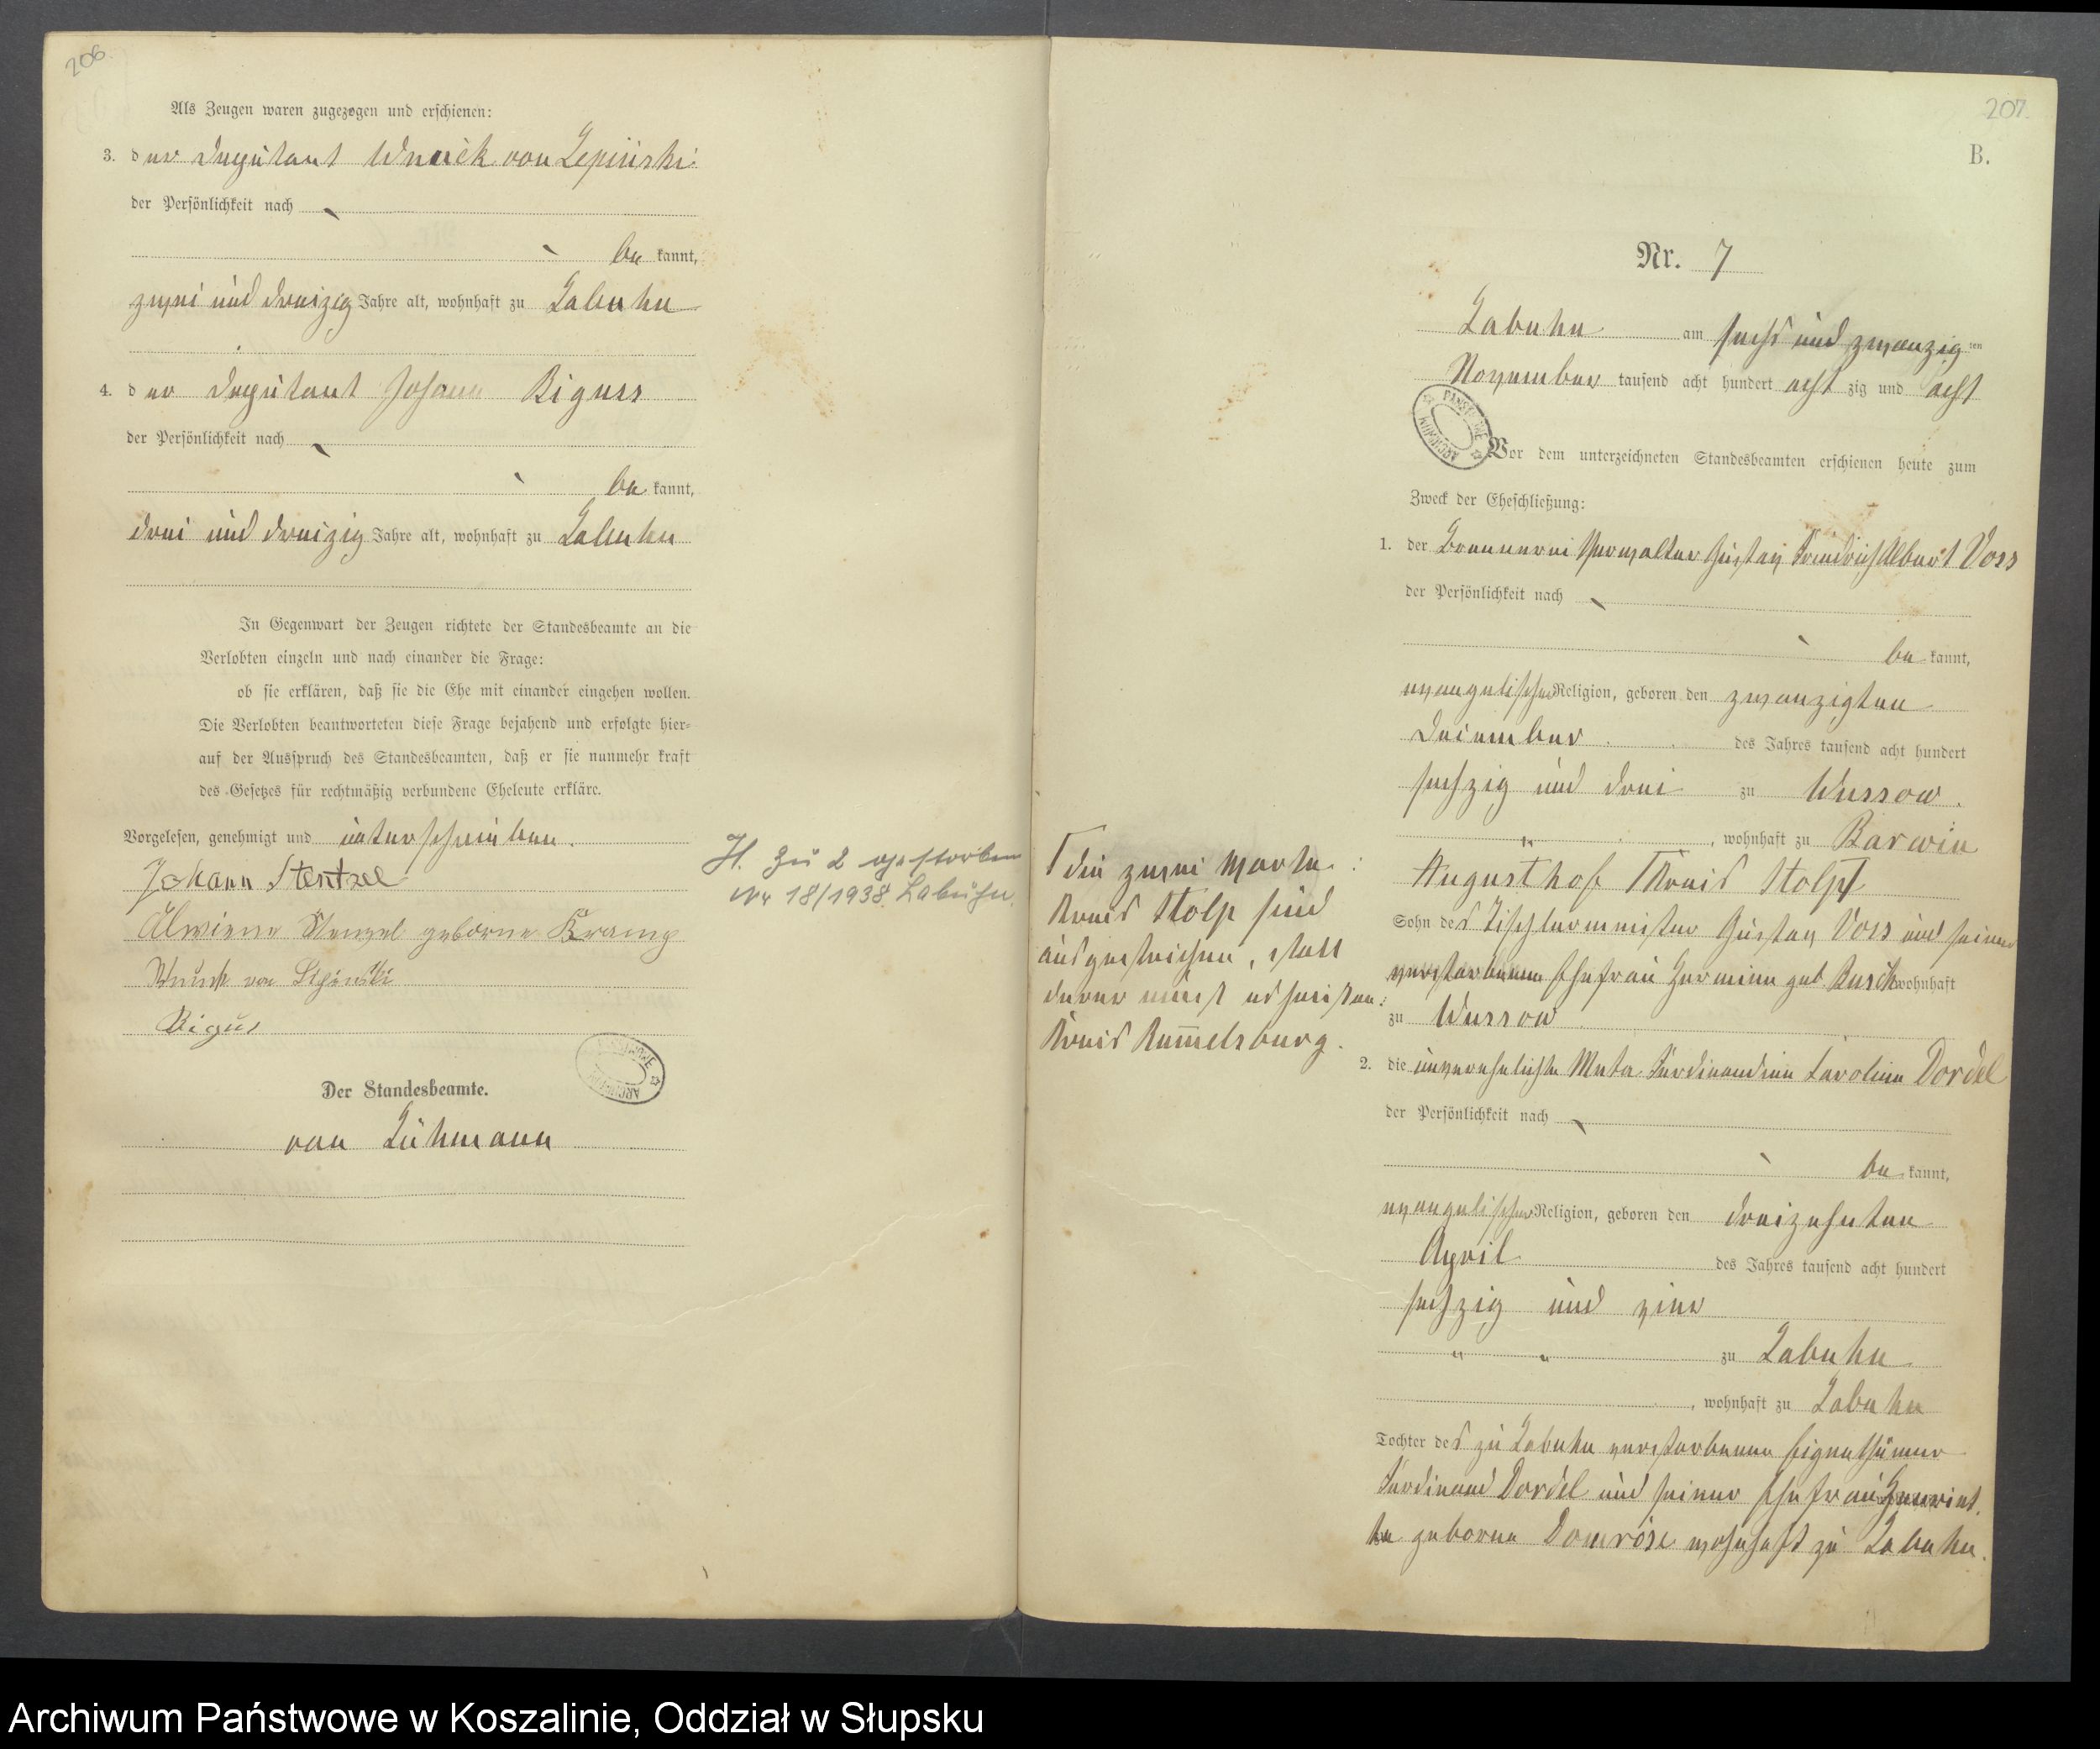 206
Als Zeugen waren zugezogen und erschienen:
3. der Deputant Wnuck von Lepinski
der Persönlichkeit nach
be kannt,
zwei und dreizig Jahre alt, wohnhaft zu Labuhn
4. der Deputant Johann Biguss
der Persönlichkeit nach
be kannt,
drei und dreizig Jahre alt, wohnhaft zu Labuhn
In Gegenwart der Zeugen richtete der Standesbeamte an die
Verlobten einzeln und nach einander die Frage:
ob sie erklären, daß sie die Ehe mit einander eingehen wollen.
Die Verlobten beantworteten diese Frage bejahend und erfolgte hier-
auf der Ausspruch des Standesbeamten, daß er sie nunmehr kraft
des Gesetzes für rechtmäßig verbundene Eheleute erkläre.
Vorgelesen, genehmigt und unterschrieben.
Johann Stentzel
Alwiene Stenzel geborne Kramp
Wnuck von Lepinski
Bigus
Der Standesbeamte.
von Lühmann
H. zu 2 gestorben
Nr 18/1938 Labuhn.
207.
B.
Nr. 7
Labuhn am sechs und zwanzig ten
November tausend acht hundert acht zig und acht
Vor dem unterzeichneten Standesbeamten erschienen heute zum
Zweck der Eheschließung:
1. der Brennerei Verwalter Gustav Friedrich Albert Voss
der Persönlichkeit nach
be kannt,
evangelischer Religion, geboren den zwanzigten
Dezember des Jahres tausend acht hundert
sechzig und drei zu Wussow.
, wohnhaft zu Barwin
Augusthof Γ Kreis Stolp Γ
Sohn des Tischlermeister Gustav Voss und seiner
verstorbenen Ehefrau Hermine geb Rusch wohnhaft
zu Wussow
Γ die zwei Worte:
Kreis Stolp sind
ausgestrichen, statt
derer muss es heisen:
Kreis Rummelsburg.
2. die unverehelichte Meta Ferdinandine Caroline Dordel
der Persönlichkeit nach
be kannt,
evangelischer Religion, geboren den dreizehnten
April des Jahres tausend acht hundert
sechzig und vier
zu Labuhn
, wohnhaft zu Labuhn
Tochter des zu Labuhn verstorbenen Eigenthümer
Ferdinand Dordel und seiner Ehefrau Henriet
te geborne Domröse wohnhaft zu Labuhn.
Archiwum Państwowe w Koszalinie, Oddział w Słupsku